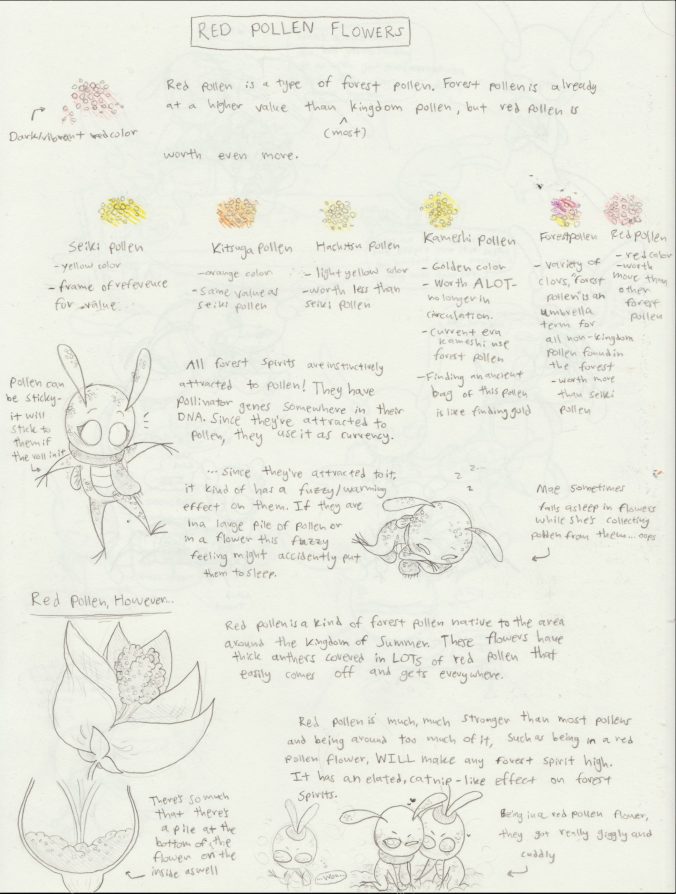 RED POLLEN FLOWERS
Red pollen is a type of forest pollen. Forest pollen is already
at a higher value than kingdom pollen, but red pollen is
^
(most)
worth even more.
Dark/vibrant red color
Seiki pollen
- yellow color
- frame of reference
for value
Kitsuga pollen
- orange color
- same value as
seiki pollen
Hachitsu pollen
- light yellow color
- worth less than
seiki pollen
Kameshi pollen
- Golden color
- Worth A LOT-
no longer in
circulation.
- Current era
kameshi use
forest pollen
- Finding an ancient
bag of this pollen
is like finding gold
Forest pollen
- variety of
clors, "forest
pollen is an
umbrella
term for
all non-kingdom
pollen found in
the forest
- worth more
than seiki
pollen
Red pollen
- red color
- worth
more than
other
forest
pollen
Pollen can
be sticky-
it will
stick to
them if
the roll in it
All forest spirits are instinctively
attracted to pollen! They have
pollinator genes somewhere in their
DNA. Since they're attracted to
pollen, they use it as currency.
... since they're attracted to it,
it kind of has a fuzzy/warming
effect on them. If they are
in a large pile of pollen or
in a flower this fuzzy
feeling might accidently put
them to sleep.
z z...
z
Mae sometimes
falls asleep in flowers
while she's collecting
pollen from them... oops
Red Pollen, However...
Red pollen is a kind of forest pollen native to the area
around the kingdom of Summer. These flowers have
thick anthers covered in LOTs of red pollen that
easily comes off and gets everywhere.
Red pollen is much, much stronger than most pollens
and being around too much of it, such as being in a red
pollen flower, WILL make any forest spirit high.
It has an elated, catnip-like effect on forest
spirits.
There's so much
that there's
a pile at the
bottom of the
flower on the
inside aswell
-woa-
Being in a red pollen flower,
they got really giggly and
cuddly